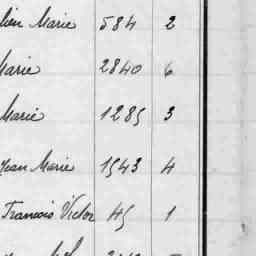 lien Marie 584 2
Marie 2840 6
Marie 1285 3
Jean Marie 1543 4
Francois Victor 45 1